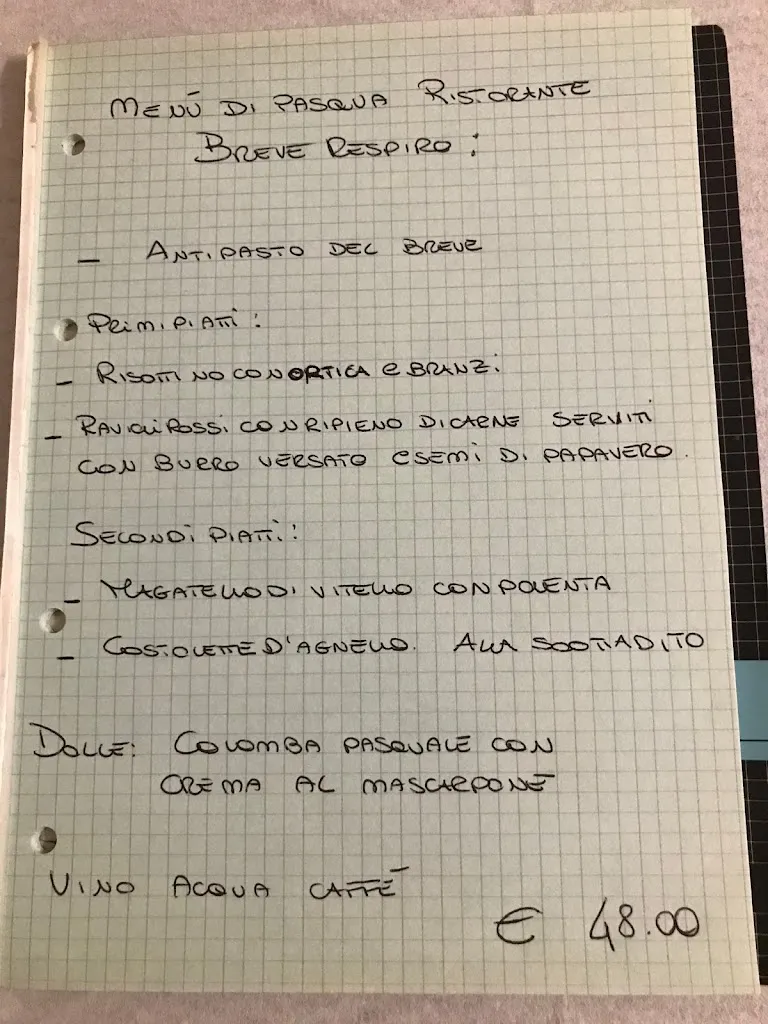 MENÙ DI PASQUA RISTORANTE
BREVE RESPIRO:
- ANTIPASTO DEL BREVE
PRIMI PIATTI:
- RISOTTINO CON ORTICA E BRANZI
- RAVIOLI ROSSI CON RIPIENO DI CARNE SERVITI
CON BURRO VERSATO E SEMI DI PAPAVERO.
SECONDI PIATTI:
- MAGATELLO DI VITELLO CON POLENTA
- COSTOLETTE D'AGNELLO. ALLA SCOTTADITO
DOLCE: COLOMBA PASQUALE CON
CREMA AL MASCARPONE
VINO ACQUA CAFFÈ
€ 48.00